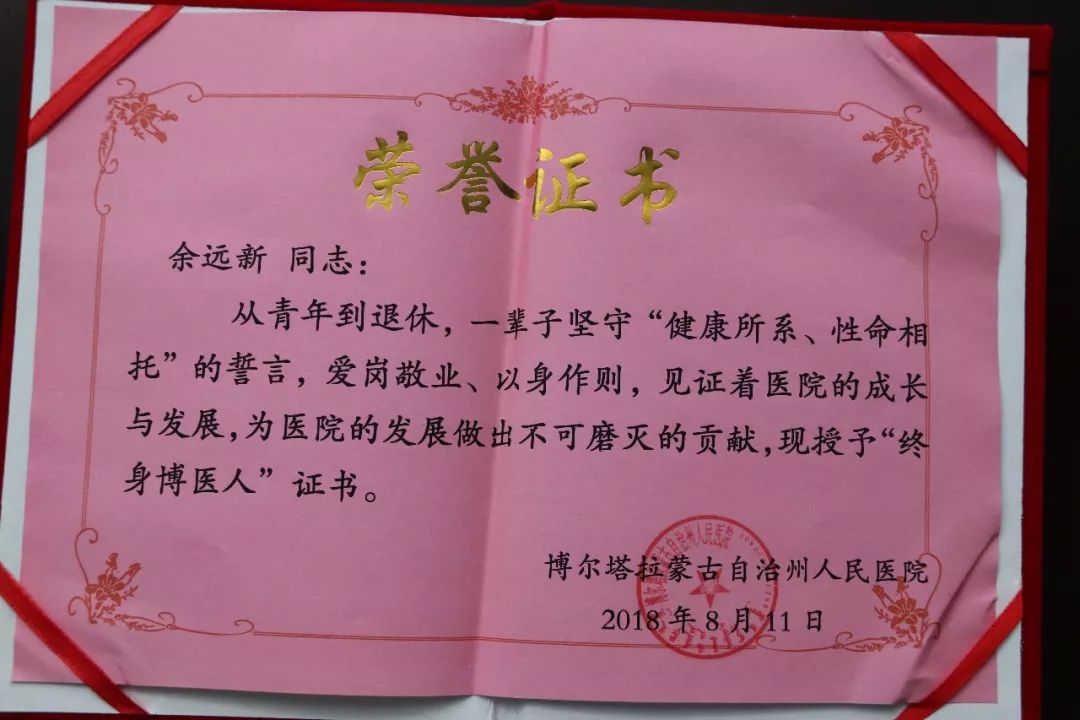 荣誉证书
余远新 同志：
从青年到退休，一辈子坚守“健康所系、性命相
托”的誓言，爱岗敬业、以身作则，见证着医院的成长
与发展，为医院的发展做出不可磨灭的贡献，现授予“终
身博医人”证书。
博尔塔拉蒙古自治州人民医院
2018 年 8 月 11 日